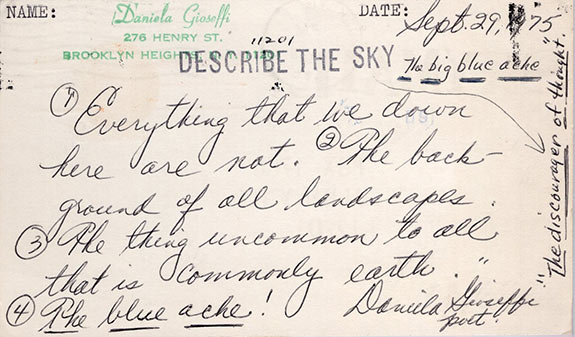 NAME:
Daniela Gioseffi
276 HENRY ST.
BROOKLYN HEIGHTS, N.Y.
11201
DATE: Sept. 29, 1975
DESCRIBE THE SKY
The big blue ache
"The discourager of thought."
① Everything that we down
here are not. ② The back-
ground of all landscapes.
③ The thing uncommon to all
that is commonly earth."
④ The blue ache!
Daniela Gioseffi
poet.